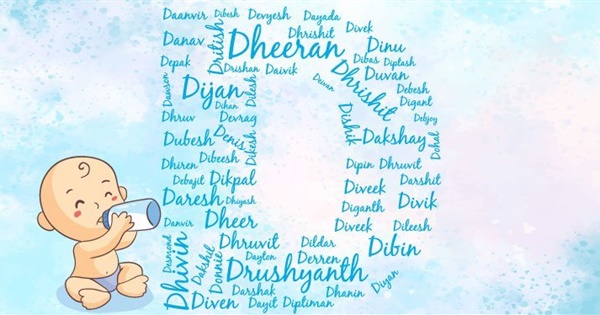 Daanvir Dibesh Devyesh Dayada
Danav Dritish Dheeran Dhrishit Divek
Dinu
Depak Drishan Daivik Dibas Diptash
Dawson Dijan Dilesh Deivan Dhrishit Duvan
Debesh
Dihan Digant
Dhruv Devrag Debjoy
Dubesh Denis Dishik Dakshay
Dohal
Dhiren Dibeesh Dikesh Dipin Dhruvit
Debajit Dikpal Diveek Darshit
Daresh Dhiyash Diganth Divik
Danvir Dheer Diveek Dileesh
Desmond Dhivin Dakshil Donnie Dhruvit Dildar Dibin
Dayton Derren
Drushyanth Diyan
Darshak Dhanin
Diven Dayit Diptiman